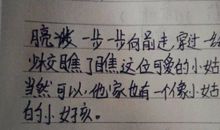 一步一步向前走,穿过一
瞧了瞧这位可爱的小姑
当然可以,他家也有一个像小姑
的小女孩。